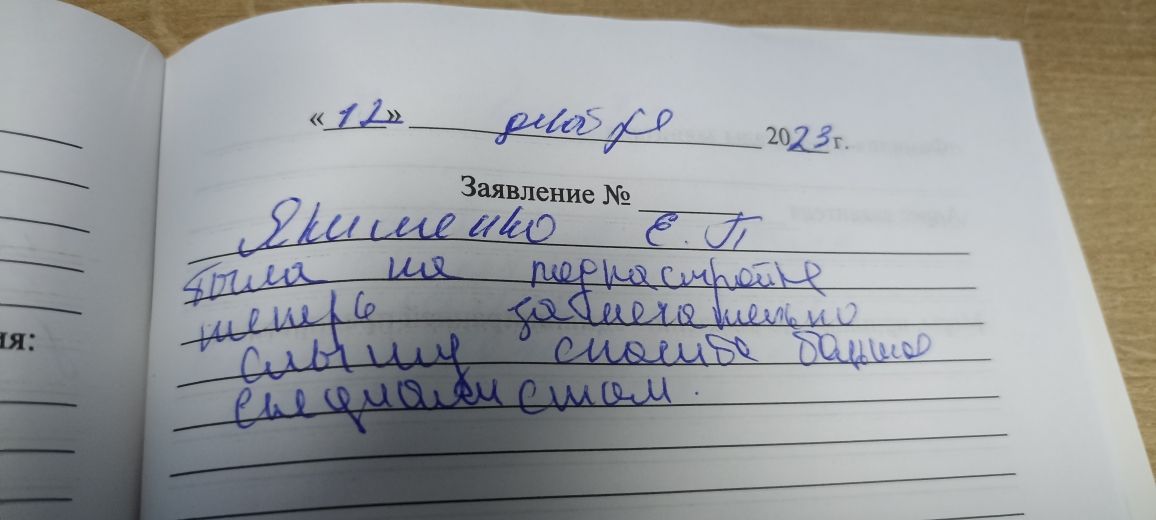 «12» декабря 2023 г.
Заявление №
Якименко Е. П
была на перенастройке
теперь замечательно
слышу спасиба большое
специалистам.
ия: